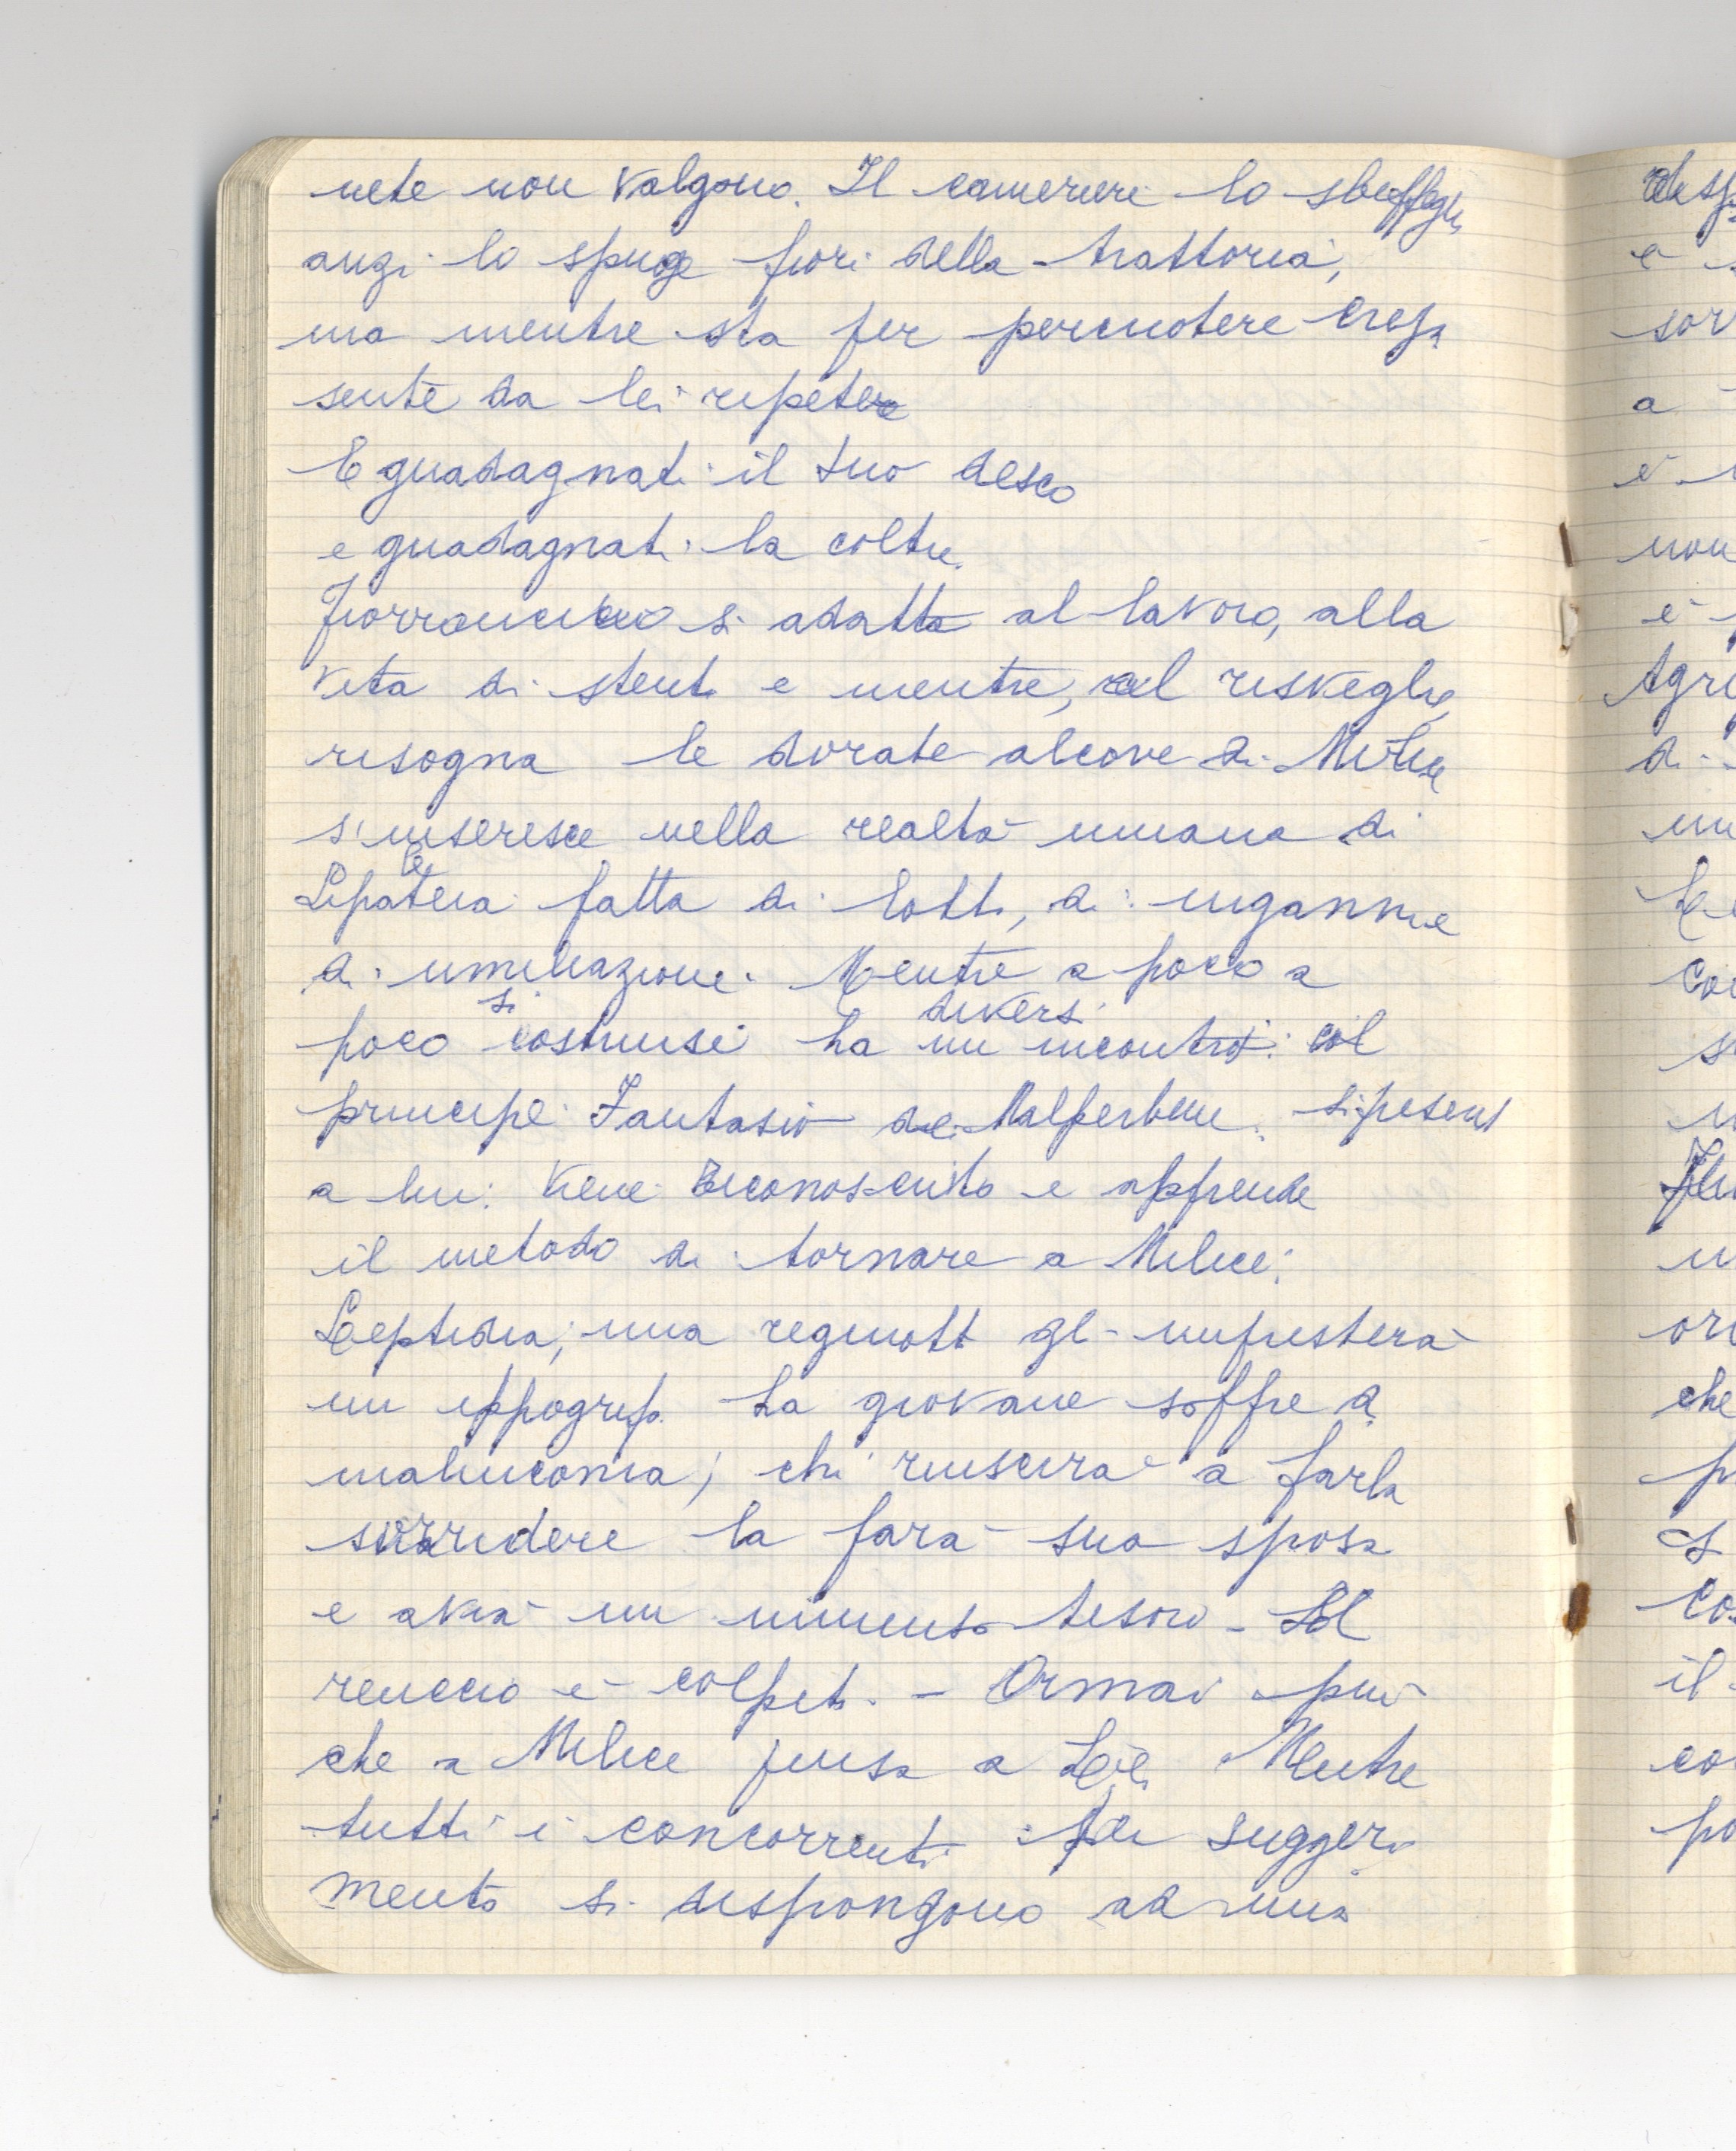 nete non valgono. Il cameriere lo sbeffeggia
anzi lo spinge fuori della trattoria,
ma mentre sta per percuotere
sente da lei ripetere
E guadagnati il tuo desco
e guadagnati la coltre.
Fiorrancino si adatta al lavoro, alla
vita di stenti e mentre, al risveglio,
risogna le dorate alcove di Milice
s'inserisce nella realtà umana di
fatta di lotte, di inganni e
di umiliazioni. Mentre a poco a
poco si costruisce ha diversi incontri col
principe Fantasio di si presenta
a lui: viene riconosciuto e apprende
il metodo di tornare a Milice:
Leptidia, una gli impresterà
un ippogrifo. La giovane soffre di
malinconia; chi riuscirà a farla
sorridere la farà sua sposa
e avrà un immenso tesoro - Il
reuccio è colpito. - Ormai più
che a Milice pensa a Lei. Mentre
tutti i concorrenti suggeri
mento si dispongono ad una
e
sor
a
è
non
è
di
che
il